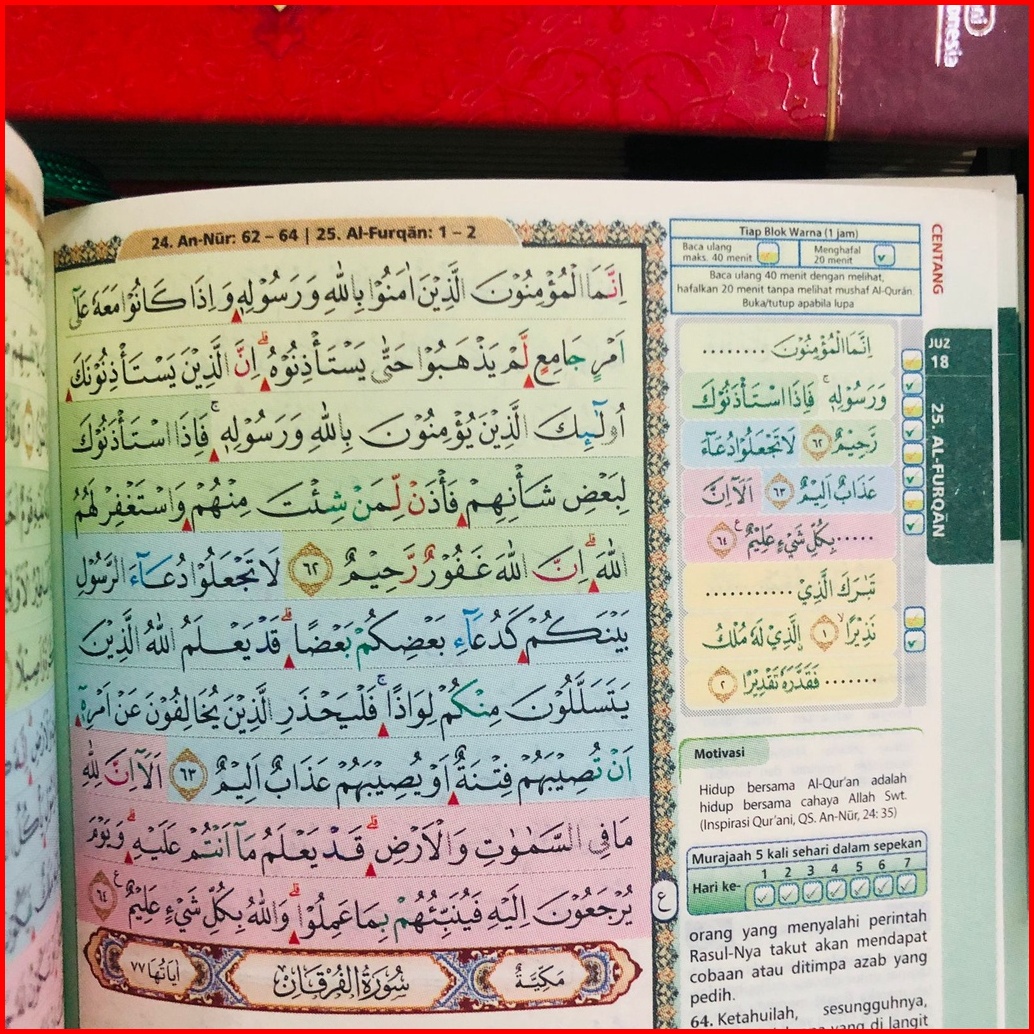 nesia
24. An-Nūr: 62 – 64 | 25. Al-Furqān: 1 – 2
اِنَّمَا الْمُؤْمِنُوْنَ الَّذِيْنَ اٰمَنُوْا بِاللّٰهِ وَرَسُوْلِهٖ وَاِذَا كَانُوْا مَعَهٗ عَلٰٓى
اَمْرٍ جَامِعٍ لَّمْ يَذْهَبُوْا حَتّٰى يَسْتَأْذِنُوْهُۗ اِنَّ الَّذِيْنَ يَسْتَأْذِنُوْنَكَ
اُولٰۤىِٕكَ الَّذِيْنَ يُؤْمِنُوْنَ بِاللّٰهِ وَرَسُوْلِهٖۚ فَاِذَا اسْتَأْذَنُوْكَ
لِبَعْضِ شَأْنِهِمْ فَأْذَنْ لِّمَنْ شِئْتَ مِنْهُمْ وَاسْتَغْفِرْ لَهُمُ
اللّٰهَۗ اِنَّ اللّٰهَ غَفُوْرٌ رَّحِيْمٌ ٦٢ لَا تَجْعَلُوْا دُعَاۤءَ الرَّسُوْلِ
بَيْنَكُمْ كَدُعَاۤءِ بَعْضِكُمْ بَعْضًاۗ قَدْ يَعْلَمُ اللّٰهُ الَّذِيْنَ
يَتَسَلَّلُوْنَ مِنْكُمْ لِوَاذًاۚ فَلْيَحْذَرِ الَّذِيْنَ يُخَالِفُوْنَ عَنْ اَمْرِهٖٓ
اَنْ تُصِيْبَهُمْ فِتْنَةٌ اَوْ يُصِيْبَهُمْ عَذَابٌ اَلِيْمٌ ٦٣ اَلَآ اِنَّ لِلّٰهِ
مَا فِى السَّمٰوٰتِ وَالْاَرْضِۗ قَدْ يَعْلَمُ مَآ اَنْتُمْ عَلَيْهِۗ وَيَوْمَ
يُرْجَعُوْنَ اِلَيْهِ فَيُنَبِّئُهُمْ بِمَا عَمِلُوْاۗ وَاللّٰهُ بِكُلِّ شَيْءٍ عَلِيْمٌ ࣖ ٦٤
مَكِّيَّةٌ سُوْرَةُ الْفُرْقَانِ اٰيَاتُهَا ٧٧
ع
Tiap Blok Warna (1 jam)
Baca ulang maks. 40 menit
Menghafal 20 menit
Baca ulang 40 menit dengan melihat,
hafalkan 20 menit tanpa melihat mushaf Al-Qurān.
Buka/tutup apabila lupa
CENTANG
اِنَّمَا الْمُؤْمِنُوْنَ ..........
وَرَسُوْلِهٖۚ فَاِذَا اسْتَأْذَنُوْكَ
رَّحِيْمٌ ٦٢ لَا تَجْعَلُوْا دُعَاۤءَ
عَذَابٌ اَلِيْمٌ ٦٣ اَلَآ اِنَّ
.....بِكُلِّ شَيْءٍ عَلِيْمٌ ࣖ ٦٤
تَبٰرَكَ الَّذِيْ ............
نَذِيْرًاۙ ١ ۨالَّذِيْ لَهٗ مُلْكُ
....... فَقَدَّرَهٗ تَقْدِيْرًا ٢
JUZ
18
25. AL-FURQĀN
Motivasi
Hidup bersama Al-Qur'an adalah
hidup bersama cahaya Allah Swt.
(Inspirasi Qur'ani, QS. An-Nūr, 24: 35)
Murajaah 5 kali sehari dalam sepekan
Hari ke- 1 2 3 4 5 6 7
orang yang menyalahi perintah
Rasul-Nya takut akan mendapat
cobaan atau ditimpa azab yang
pedih.
64. Ketahuilah, sesungguhnya,
yang di langit